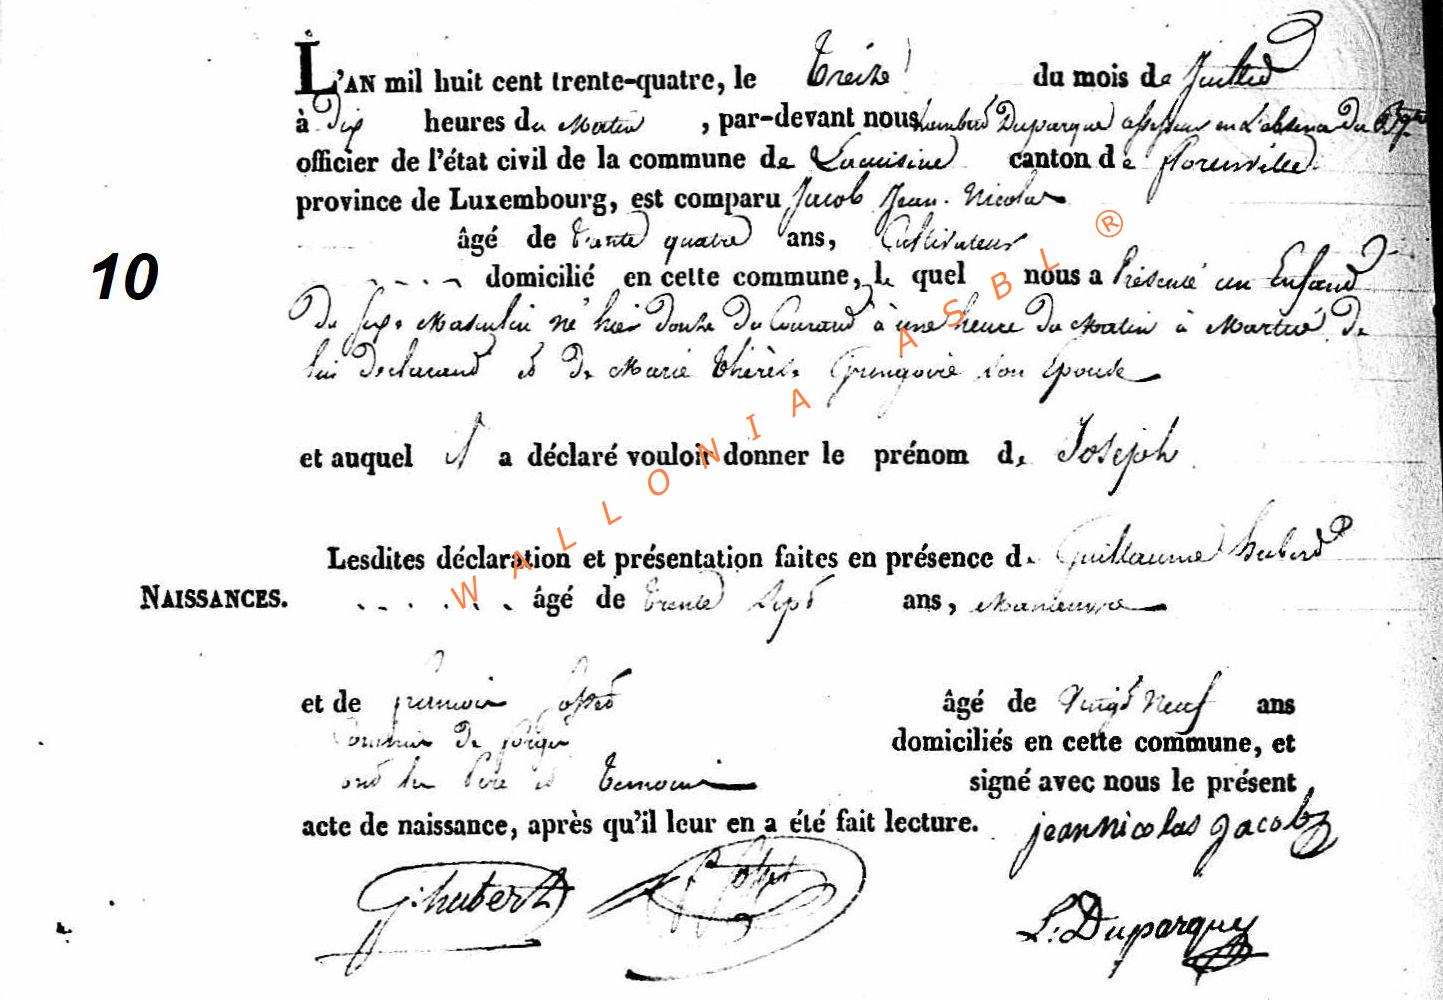 L'AN mil huit cent trente-quatre, le Treize du mois de Juillet
à Dix heures du Matin , par-devant nous Lambert Duparque assesseur en L'absence du Bgmr
officier de l'état civil de la commune de Lacuisine canton de florenville
province de Luxembourg, est comparu Jacob Jean Nicolas
âgé de trente quatre ans, Cultivateur
domicilié en cette commune, le quel nous a Présenté un Enfand
Du Sexe Masculin né hier Douze Du Courand à une heure Du Matin à Martué De
lui Declarand et De Marie thérèse Gringoire son Epouse
et auquel il a déclaré vouloir donner le prénom de Joseph
Lesdites déclaration et présentation faites en présence de Guillaume hubert
NAISSANCES. âgé de trente sept ans, Manœuvre
10
et de âgé de Vingt Neuf ans
De forge domiciliés en cette commune, et
ont les Père et Temoins signé avec nous le présent
acte de naissance, après qu'il leur en a été fait lecture. jean nicolas jacob
G. hubert
L. Duparque
WALLONIA ASBL ®